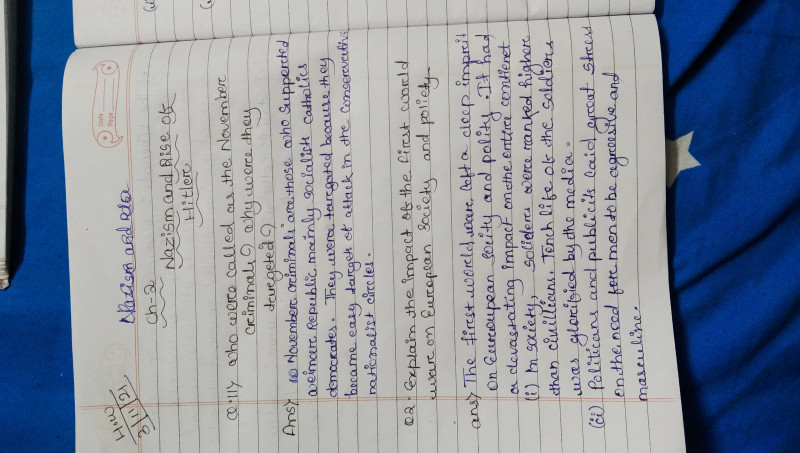 H.W
3/11/21
Date
Page
Nazism and
Ch-2
Nazism and Rise of
Hitler
Q.1 who were called as the November
criminals? why were they
targeted?
Ans) November criminals are those who supported
weimare Republic mainly socialists catholics
democrates. They were targated because they
became easy target of attack in the conservative
nationalist circles.
Q2. Explain the impact of the first world
ware on European society and policty.
ans) The first world ware left a deep imprit
on Eurcoupean society and polity. It had
a devastating impact on the entire contient
(i) In society, soliders were ranked higher
than civillians. Tench life of the soldiers
was glorified by the media.
(ii) Politicans and publicits laid great stress
on the need for men to be agressive and
masculine.